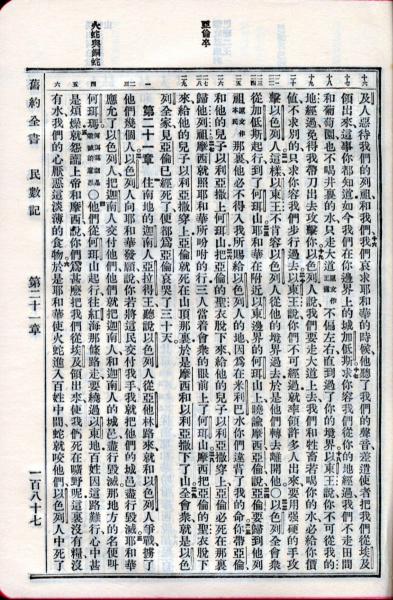 亞倫卒
火蛇與銅蛇
及人惡待我們的列祖和我們我們哀求耶和華的時候他聽了我們的聲音差遣使者把我們從埃及
領出來這事你都知道如今我們在你邊界上的城加低斯求你容我們從你的地經過我們不走田間
和葡萄園也不喝井裏的水只走大道原文作王道不偏左右直到過了你的境界以東王說你不可從我的
地經過免得我帶刀出去攻擊你以色列人說我們要走大道上去我們和牲畜若喝你的水必給你價
值不求別的只求你容我們步行過去以東王說你們不可經過就率領許多人出來要用強硬的手攻
擊以色列人這樣以東王不肯容以色列人從他的境界過去於是他們轉去離開他〇以色列全會衆
從加低斯起行到了何珥山耶和華在附近以東邊界的何珥山上曉諭摩西亞倫說亞倫要歸到他列
祖原文作本民那裏他必不得入我所賜給以色列人的地因爲在米利巴水你們違背了我的命你帶亞倫
和他的兒子以利亞撒上何珥山把亞倫的聖衣脫下來給他的兒子以利亞撒穿上亞倫必死在那裏
歸他列祖摩西就照耶和華所吩咐的行三人當着會衆的眼前上了何珥山摩西把亞倫的聖衣脫下
來給他的兒子以利亞撒穿上亞倫就死在山頂那裏於是摩西和以利亞撒下了山全會衆就是以色
列全家見亞倫已經死了便都爲亞倫哀哭了三十天
第二十一章 住南地的迦南人亞拉得王聽說以色列人從亞他林路來就和以色列人爭戰擄了
他們幾個人以色列人向耶和華發願說你若將這民交付我手我就把他們的城邑盡行毀滅耶和華
應允了以色列人把迦南人交付他們他們就把迦南人和迦南人的城邑盡行毀滅那地方的名便叫
何珥瑪何珥瑪就是毀滅的意思〇他們從何珥山起行往紅海那條路走要繞過以東地百姓因這路難行心中甚
是煩燥就怨讟上帝和摩西說你們爲甚麽把我們從埃及領出來使我們死在曠野呢這裏沒有糧沒
有水我們的心厭惡這淡薄的食物於是耶和華使火蛇進入百姓中間蛇就咬他們以色列人中死了
舊約全書 民數記 第二十一章 一百八十七